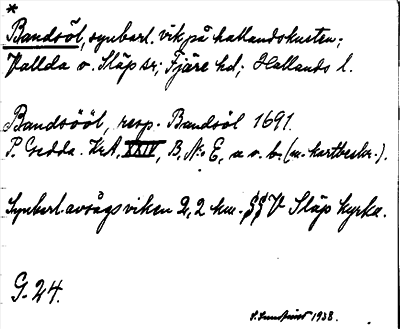 *
Bandsöl, synbarl. vik på hallandskusten;
Vallda o. Släp sr; Fjäre hd; Hallands l.
Bandsööl, resp. Bandsöl 1691.
P. Gedda. KrA, XXIV, B, N:o E, a o. b. (m. kartbeskr.).
Synbarl. avsågs viken 2,2 km. SSV Släp kyrka.
G-24.
1938.